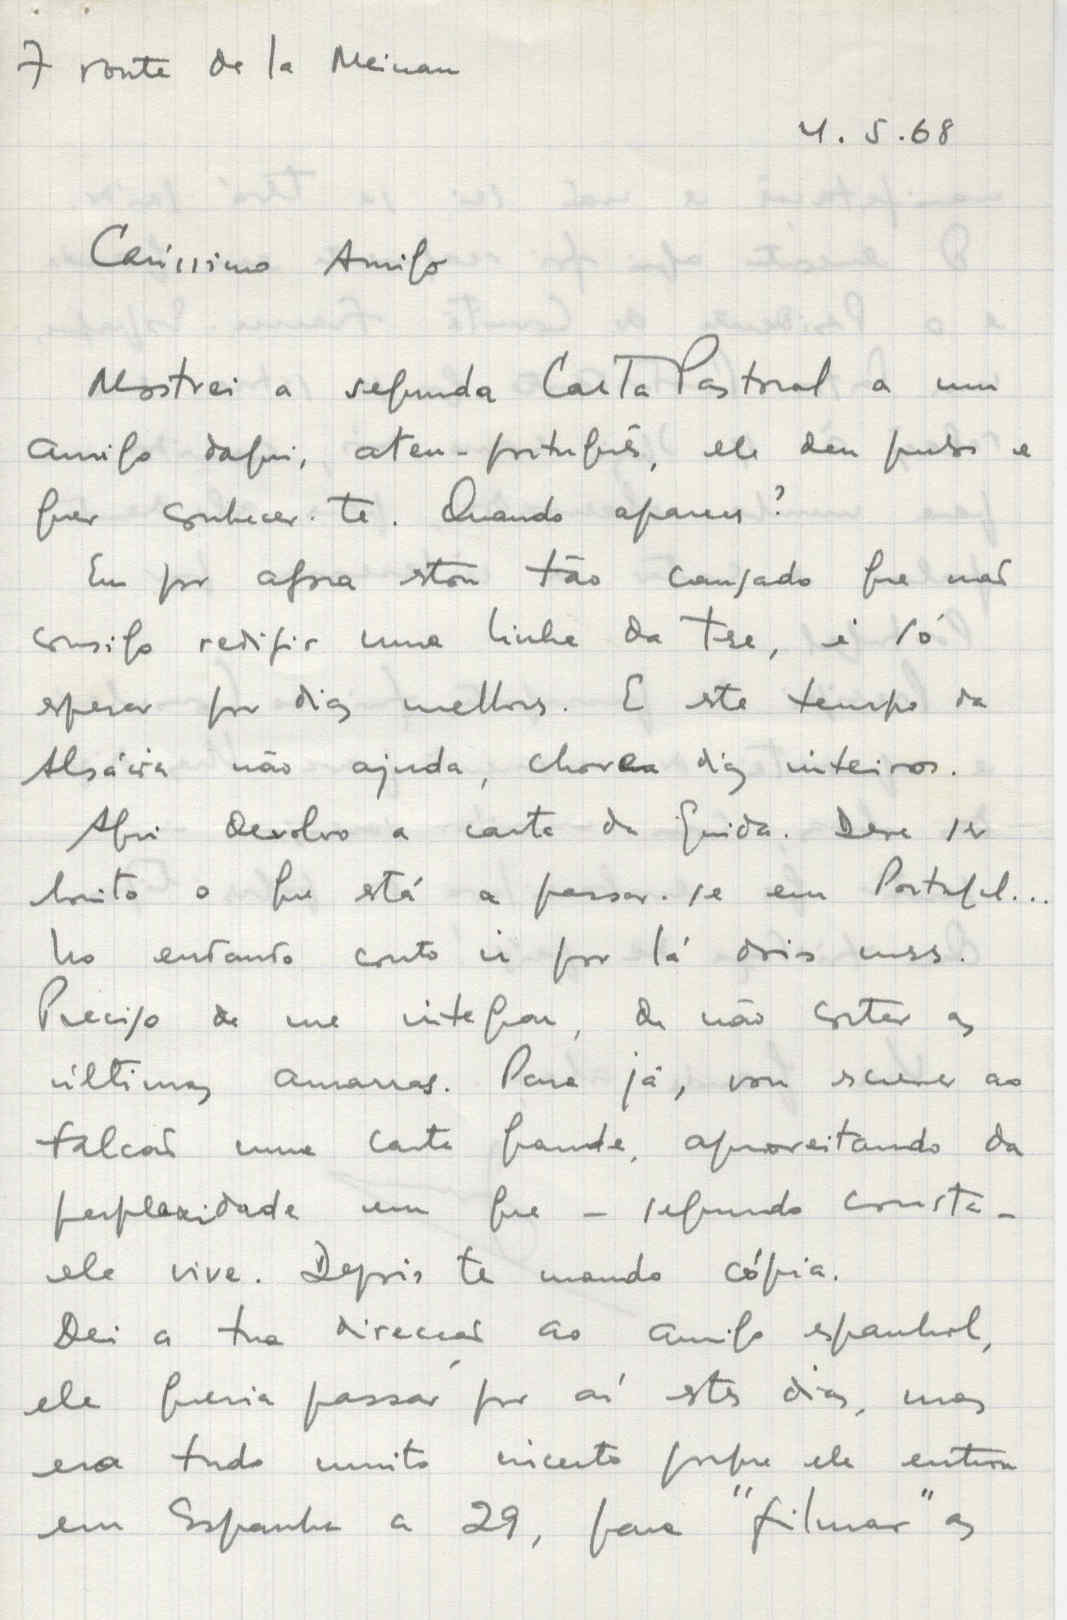 7 route de la Meinau
4.5.68
Caríssimo Amigo
Mostrei a segunda Carta Pastoral a um
amigo daqui, ateu-português, ele deu pulos e
quer conhecer-te. Quando apareces?
Eu por agora estou tão cansado que não
consigo redigir uma linha da tese, é só
esperar por dias melhores. E este tempo da
Alsácia não ajuda, chove dias inteiros.
Aqui devolvo a carta da Guida. Deve ser
bonito o que está a passar-se em Portugal...
No entanto conto ir por lá dois meses.
Preciso de me integrar, de não cortar as
últimas amarras. Para já, vou escrever ao
Falcão uma carta grande, aproveitando da
perplexidade em que - segundo consta -
ele vive. Depois te mando cópia.
Dei a tua direcção ao amigo espanhol,
ele queria passar por aí estes dias, mas
era tudo muito incerto porque ele entrou
em Espanha a 29, para "filmar" as